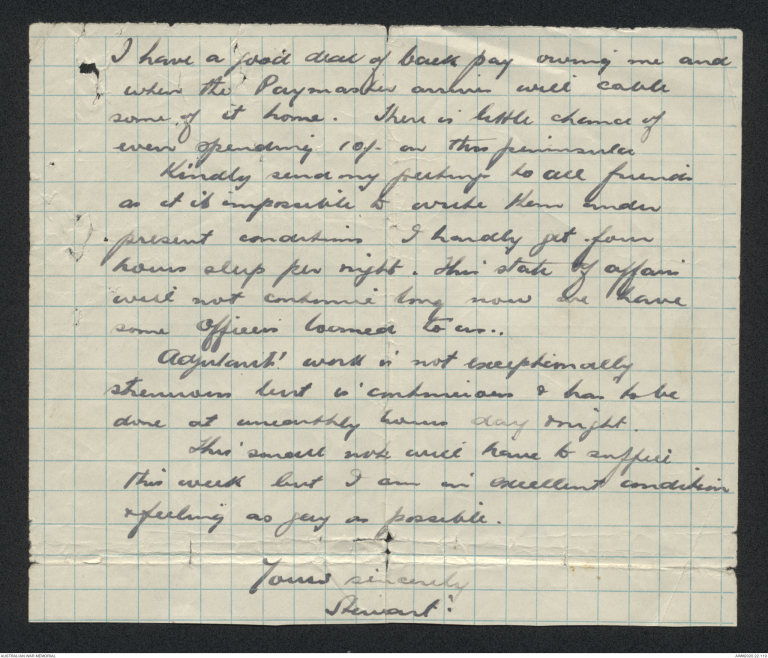 I have a good deal of back pay owing me and
when the Paymaster arrives will cable
some of it home. There is little chance of
even spending 10/- on this peninsula
Kindly send my greetings to all friends
as it is impossible to write them under
present conditions I hardly get four
hours sleep per night. This state of affairs
will not continue long now we have
some Officers loaned to us..
Adjutant's work is not exceptionally
strenuous but is continuous & has to be
done at unearthly hours day & night.
This small note will have to suffice
this week but I am in excellent condition
& feeling as gay as possible.
Yours sincerely
Stewart.
AUSTRALIAN WAR MEMORIAL